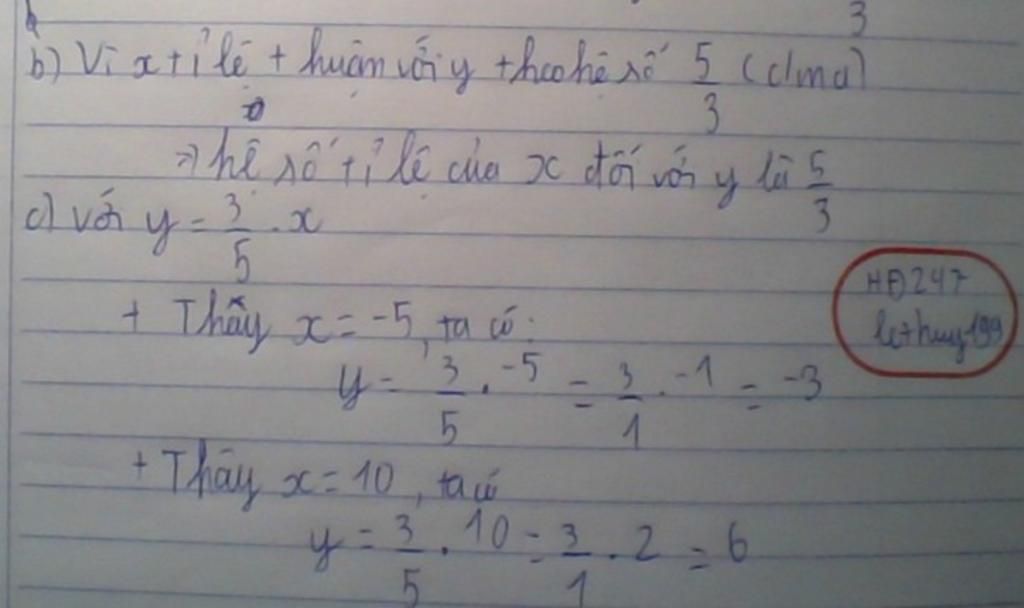 3
b) Vì x tỉ lệ thuận với y theo hệ số 5/3 (clma)
=> hệ số tỉ lệ của x đối với y là 5/3
c) với y = 3/5 . x
+ Thấy x = -5, ta có:
HĐ247
lethuy199
y = 3/5 . -5 = 3/1 . -1 = -3
+ Thấy x = 10, ta có
y = 3/5 . 10 = 3/1 . 2 = 6